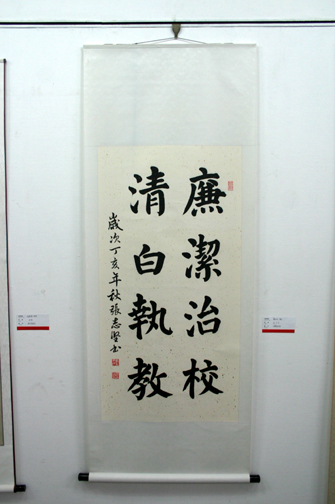 廉潔治校
清白執教
歲次丁亥年秋張志堅書